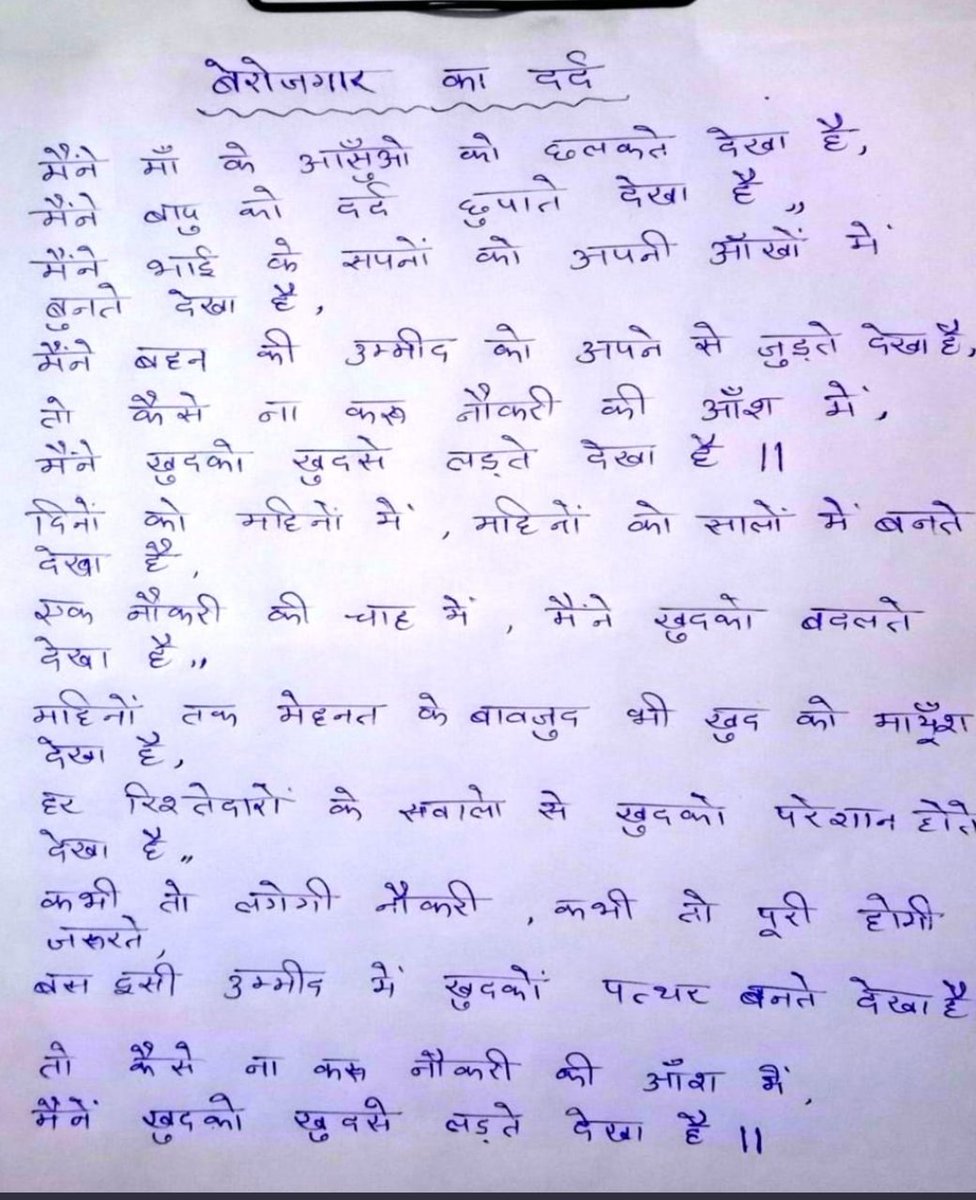 बेरोजगार का दर्द
मैंने माँ के आँसुओ को छलकते देखा है,
मैंने बापु को दर्द छुपाते देखा है,,
मैंने भाई के सपनों को अपनी आँखों में
बुनते देखा है,
मैंने बहन की उम्मीद को अपने से जुड़ते देखा है,
तो कैसे ना करू नौकरी की आँश में,
मैंने खुदको खुदसे लड़ते देखा है ॥
दिनों को महिनों में, महिनों को सालों में बनते
देखा है,
एक नौकरी की चाह में, मैंने खुदको बदलते
देखा है,,
महिनों तक मेहनत के बावजुद भी खुद को मायूँश
देखा है,
हर रिश्तेदारों के सवालो से खुदको परेशान होते
देखा है,,
कभी तो लगेगी नौकरी, कभी तो पूरी होगी
जरूरते,
बस इसी उम्मीद में खुदकों पत्थर बनते देखा है
तो कैसे ना करू नौकरी की आँश में,
मैनें खुदको खुदसे लड़ते देखा है ॥